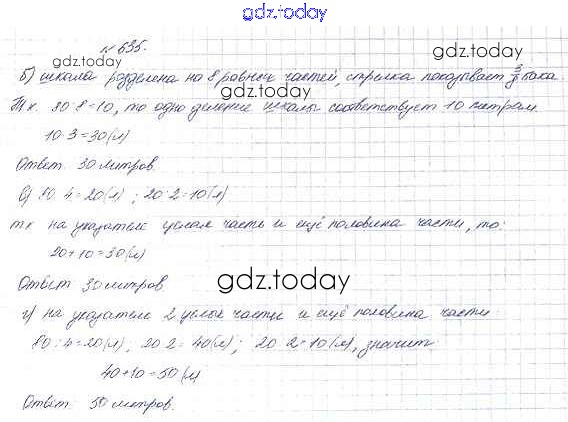 gdz.today
№ 635.
gdz.today
gdz.today
б) шкала разделена на 8 равных частей, стрелка показывает 3/8 бака.
gdz.today
Т.к. 80:8=10, то одно деление шкалы соответствует 10 литрам.
10·3=30(л)
Ответ 30 литров.
в) 80:4=20(л) ; 20:2=10(л)
т.к на указателе целая часть и ещё половина части, то:
20+10=30(л)
gdz.today
Ответ 30 литров
г) на указателе 2 целые части и ещё половина части:
80:4=20(л), 20·2=40(л); 20:2=10(л), значит:
40+10=50(л)
Ответ: 50 литров.